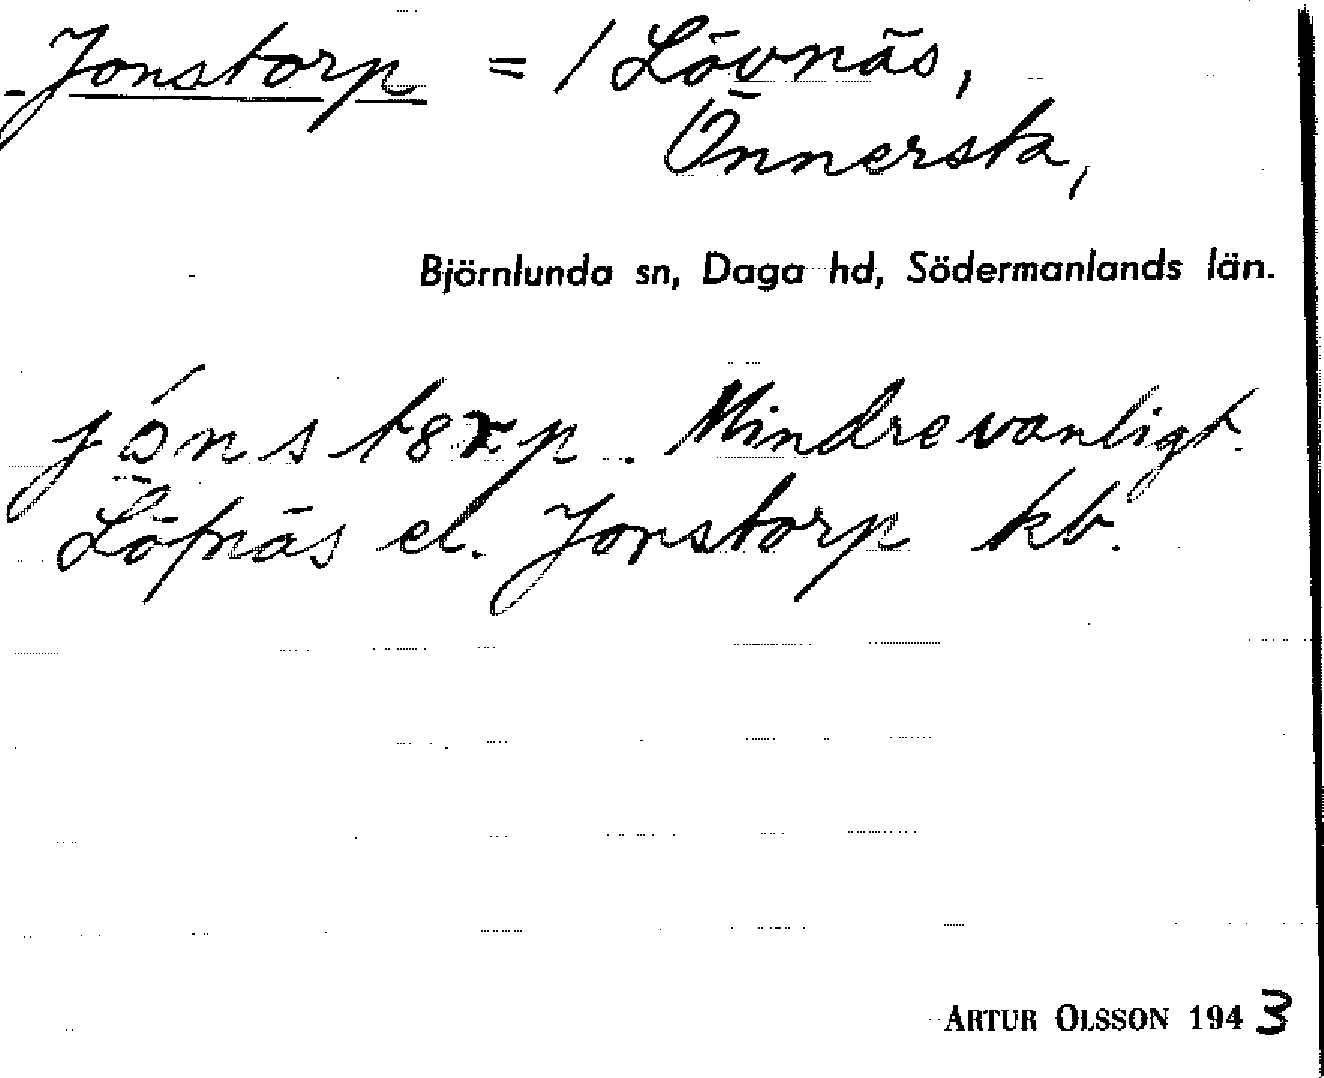 Jonstorp = / Lövnäs,
Önnersta,
Björnlunda sn, Daga hd, Södermanlands län.
jónst8rp. Mindre vanligt.
Löfnäs el. Jonstorp kb.
ARTUR OLSSON 1943